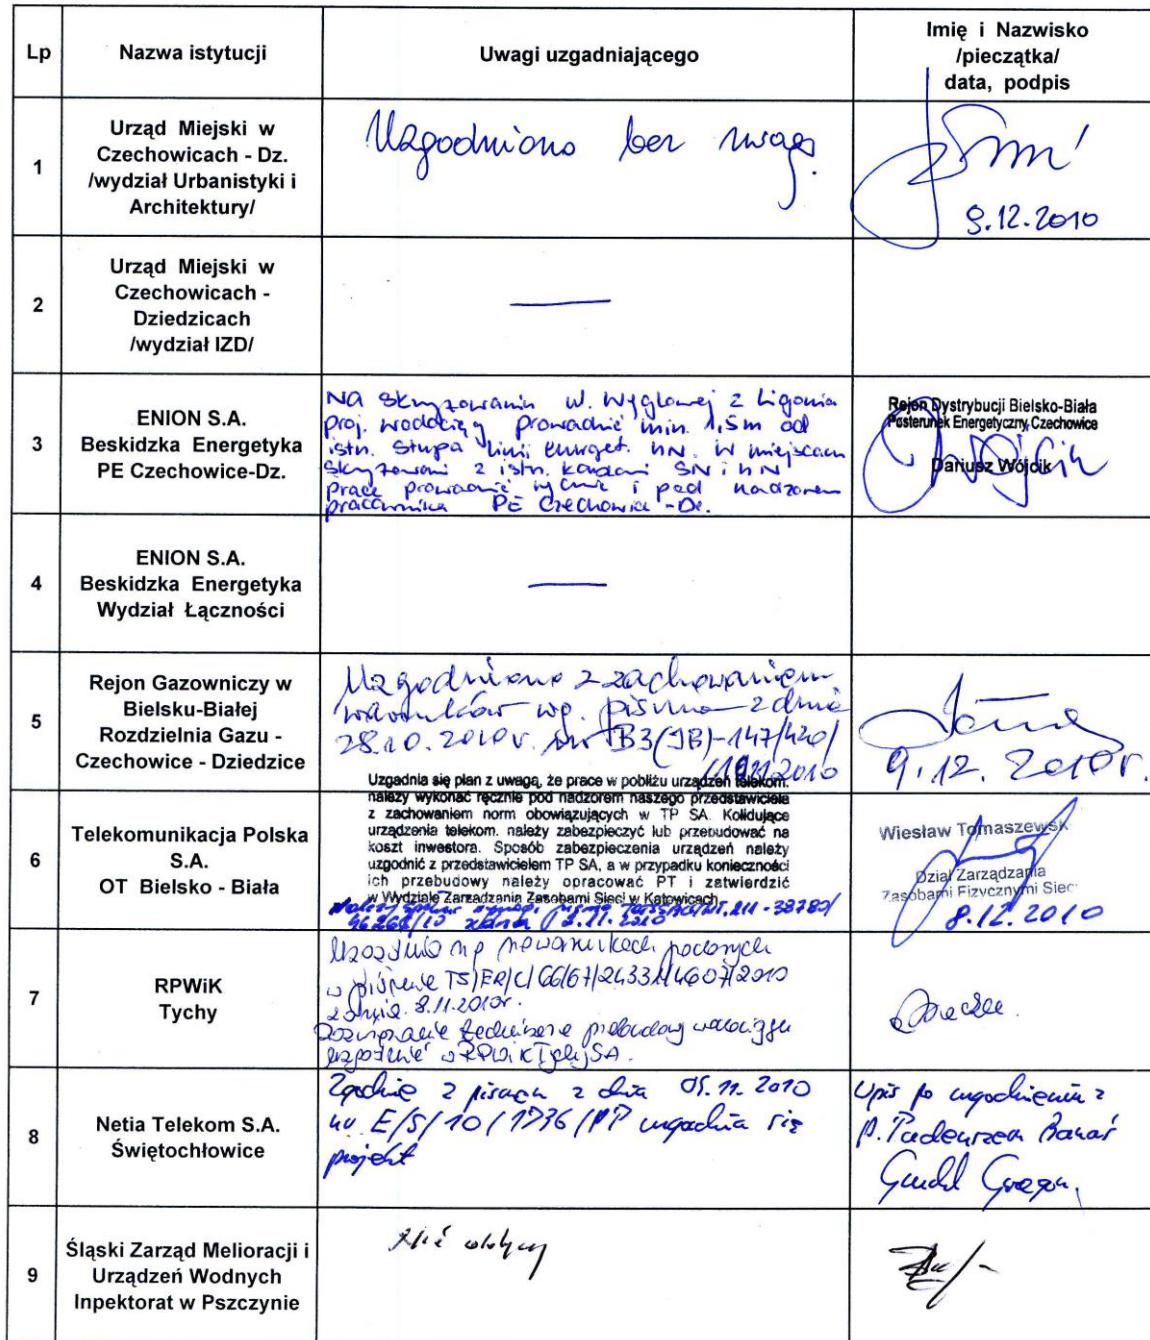 Lp
Nazwa istytucji
Uwagi uzgadniającego
Imię i Nazwisko
/pieczątka/
data, podpis
1
Urząd Miejski w
Czechowicach - Dz.
/wydział Urbanistyki i
Architektury/
Uzgodniono bez uwag.
9.12.2010
2
Urząd Miejski w
Czechowicach -
Dziedzicach
/wydział IZD/
3
ENION S.A.
Beskidzka Energetyka
PE Czechowice-Dz.
Na skrzyżowaniu ul. Węglowej z Ligonia
proj. wodociąg prowadzić min. 1,5m od
istn. słupa linii energet. nN. W miejscach
skrzyżowań z istn. kablami SN i nN
prace prowadzić ręcznie i pod nadzorem
pracownika PE Czechowice-Dz.
Rejon Dystrybucji Bielsko-Biała
Posterunek Energetyczny Czechowice
Dariusz Wójcik
4
ENION S.A.
Beskidzka Energetyka
Wydział Łączności
5
Rejon Gazowniczy w
Bielsku-Białej
Rozdzielnia Gazu -
Czechowice - Dziedzice
Uzgodniono z zachowaniem
warunków wg. pisma z dnia
28.10.2010r. nr TB3(JB)-147/420/
2010
9.12.2010r.
6
Telekomunikacja Polska
S.A.
OT Bielsko - Biała
Uzgadnia się plan z uwagą, że prace w pobliżu urządzeń telekom.
należy wykonać ręcznie pod nadzorem naszego przedstawiciela
z zachowaniem norm obowiązujących w TP SA. Kolidujące
urządzenia telekom. należy zabezpieczyć lub przebudować na
koszt inwestora. Sposób zabezpieczenia urządzeń należy
uzgodnić z przedstawicielem TP SA, a w przypadku konieczności
ich przebudowy należy opracować PT i zatwierdzić
w Wydziale Zarządzania Zasobami Sieci w Katowicach
Wiesław Tomaszewsk
Dział Zarządzania
Zasobami Fizycznymi Siec
8.12.2010
7
RPWiK
Tychy
na warunkach podanych
w piśmie
z dnia 8.11.2010r.
Rozwiązanie techniczne przebudowy wodociągu
uzgodnić w RPWiK Tychy SA.
8
Netia Telekom S.A.
Świętochłowice
Zgodnie z pismem z dnia 05.11.2010
nr E/S/10/1736/PP uzgadnia się
projekt
Wpis po uzgodnieniu z
p. Tadeuszem Banaś
9
Śląski Zarząd Melioracji i
Urządzeń Wodnych
Inpektorat w Pszczynie
nie dotyczy